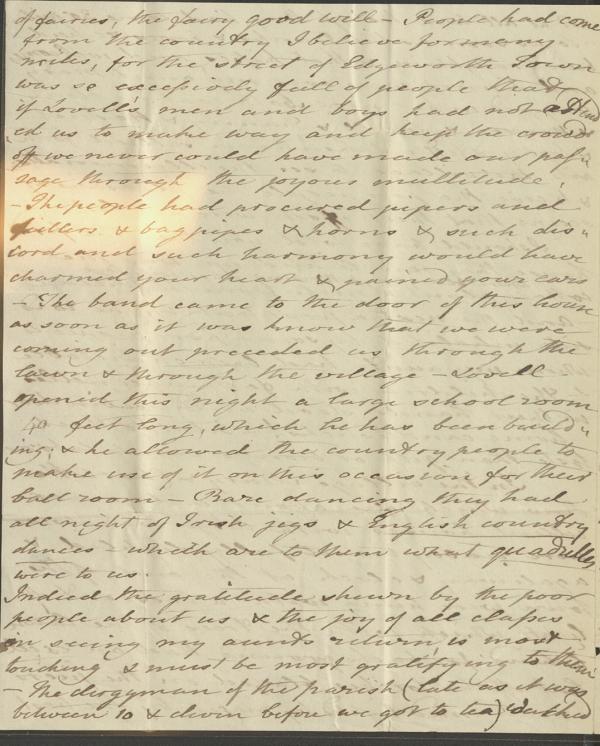 of fairies, the fairy good will – People had come
from the country I believe for many
miles, for the street of Edgeworth Town
was so excessively full of people that
if Lovell's men and boys had not attend
ed us to make way and keep the crowd
off we never could have made our pas"
sage through the joyous multitude.
– The people had procured pipers and
fidlers & bagpipes & horns & such dis"
cord and such harmony would have
charmed your heart & pained your ears
– The band came to the door of this house
as soon as it was know that we were
coming out preceded us through the
lawn & through the village – Lovell
opened this night a large school room
40 feet long, which he has been build"
ing, & he allowed the country people to
make use of it on this occasion for their
ball room – Rare dancing they had
all night of Irish jigs & English country
dances – which are to them what quadrilles
were to us.
Indeed the gratitude shewn by the poor
people about us & the joy of all classes
in seeing my aunts return, is most
touching & must be most gratifying to them
– The clergyman of the parish (late as it was
between 10 & eleven before we got to tea)